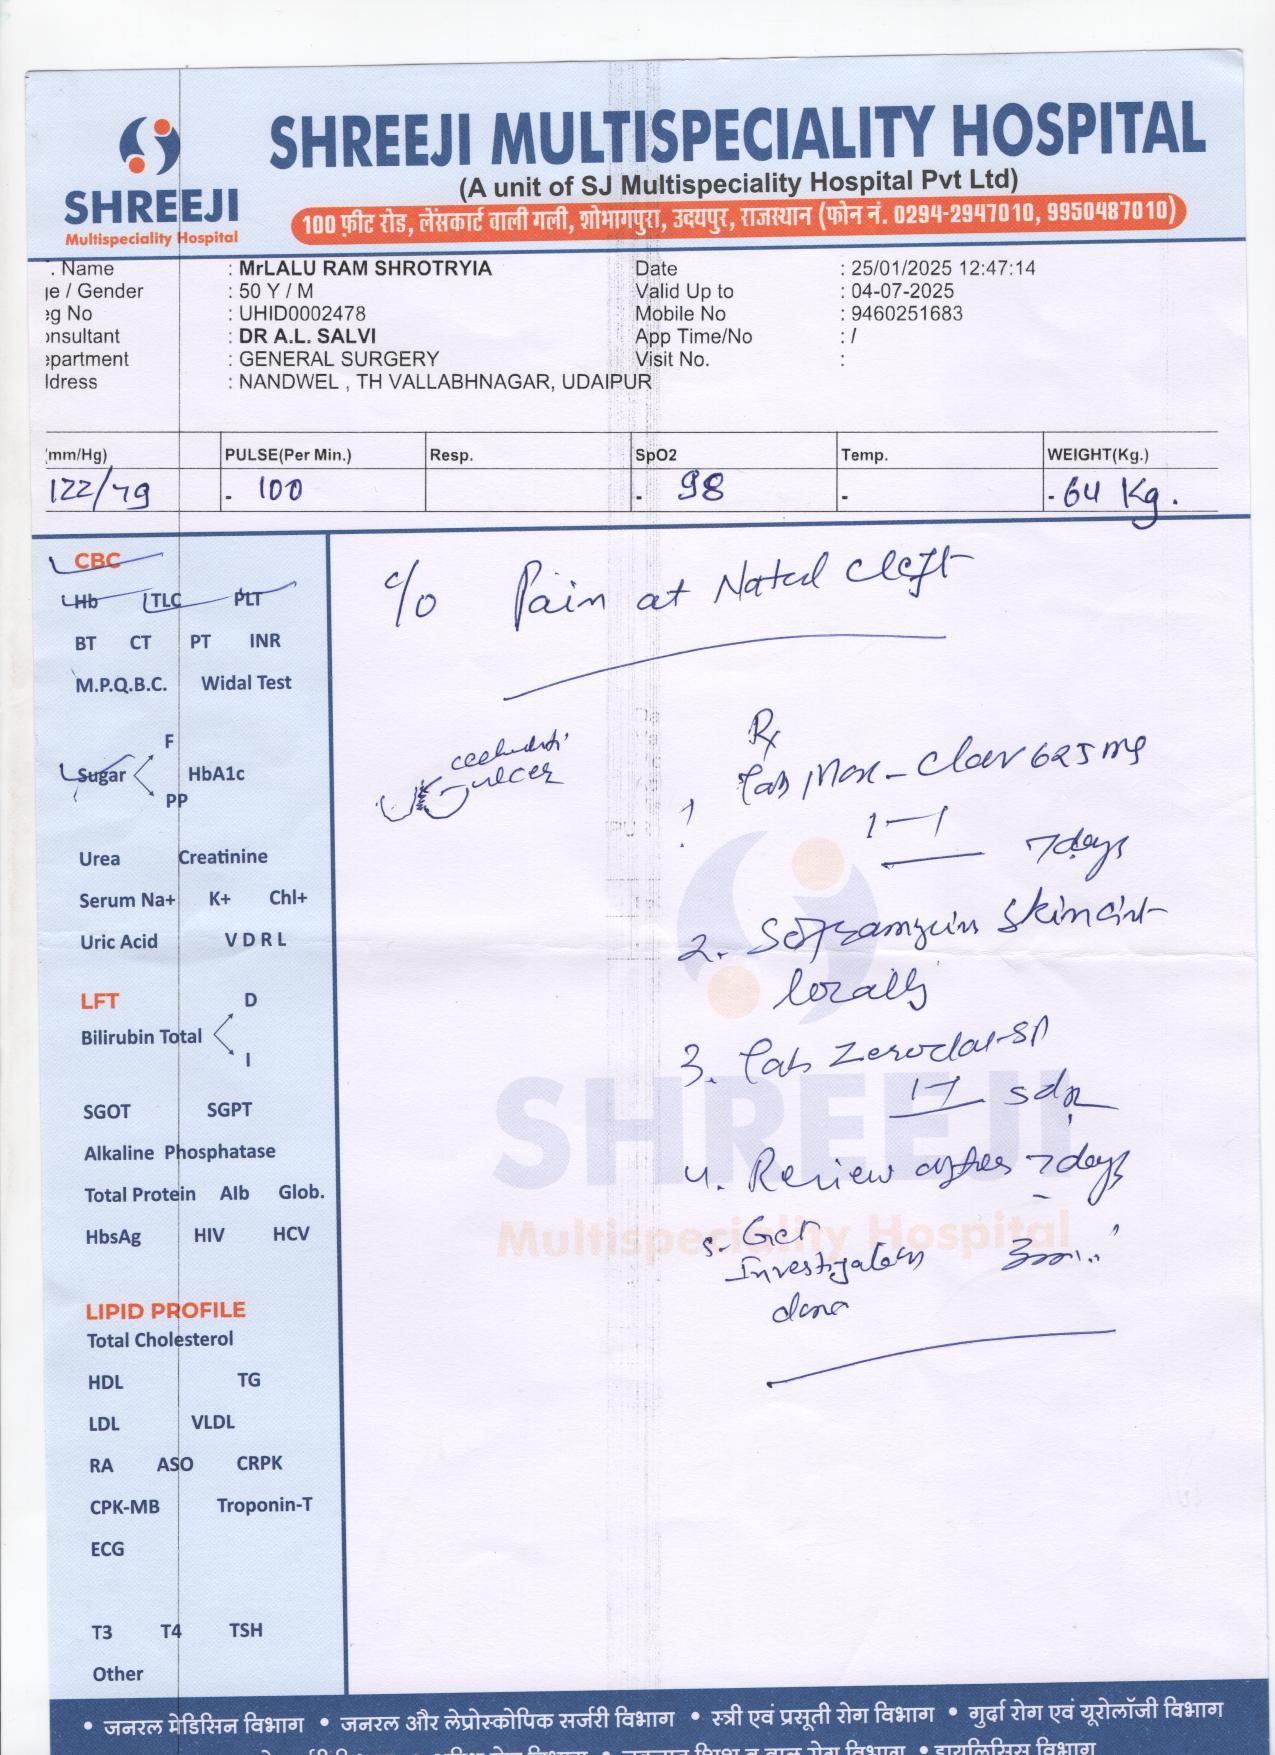 SHREEJI
Multispeciality Hospital
SHREEJI MULTISPECIALITY HOSPITAL
(A unit of SJ Multispeciality Hospital Pvt Ltd)
100 फ़ीट रोड, लेंसकार्ट वाली गली, शोभागपुरा, उदयपुर, राजस्थान (फोन नं. 0294-2947010, 9950487010)
. Name : MrLALU RAM SHROTRYIA Date : 25/01/2025 12:47:14
ge / Gender : 50 Y / M Valid Up to : 04-07-2025
eg No : UHID0002478 Mobile No : 9460251683
onsultant : DR A.L. SALVI App Time/No : /
epartment : GENERAL SURGERY Visit No. :
ldress : NANDWEL , TH VALLABHNAGAR, UDAIPUR
(mm/Hg) PULSE(Per Min.) Resp. SpO2 Temp. WEIGHT(Kg.)
122/79 - 100 - 98 - - 64 Kg.
CBC
Hb TLC PLT
BT CT PT INR
M.P.Q.B.C. Widal Test
F
Sugar HbA1c
PP
Urea Creatinine
Serum Na+ K+ Chl+
Uric Acid V D R L
LFT
D
Bilirubin Total
I
SGOT SGPT
Alkaline Phosphatase
Total Protein Alb Glob.
HbsAg HIV HCV
LIPID PROFILE
Total Cholesterol
HDL TG
LDL VLDL
RA ASO CRPK
CPK-MB Troponin-T
ECG
T3 T4 TSH
Other
c/o Pain at Natal cleft
ulcer
Rx
1. Tab Mox-Clav 625 mg
1-1 7days
2. Soframycin Skin oint
locally
3. Tab Zerodol-SP
1-1 5d
4. Review after 7days
5. Get
Investigation
done
SHREEJI
Multispeciality Hospital
• जनरल मेडिसिन विभाग • जनरल और लेप्रोस्कोपिक सर्जरी विभाग • स्त्री एवं प्रसूती रोग विभाग • गुर्दा रोग एवं यूरोलॉजी विभाग
• डायलिसिस विभाग